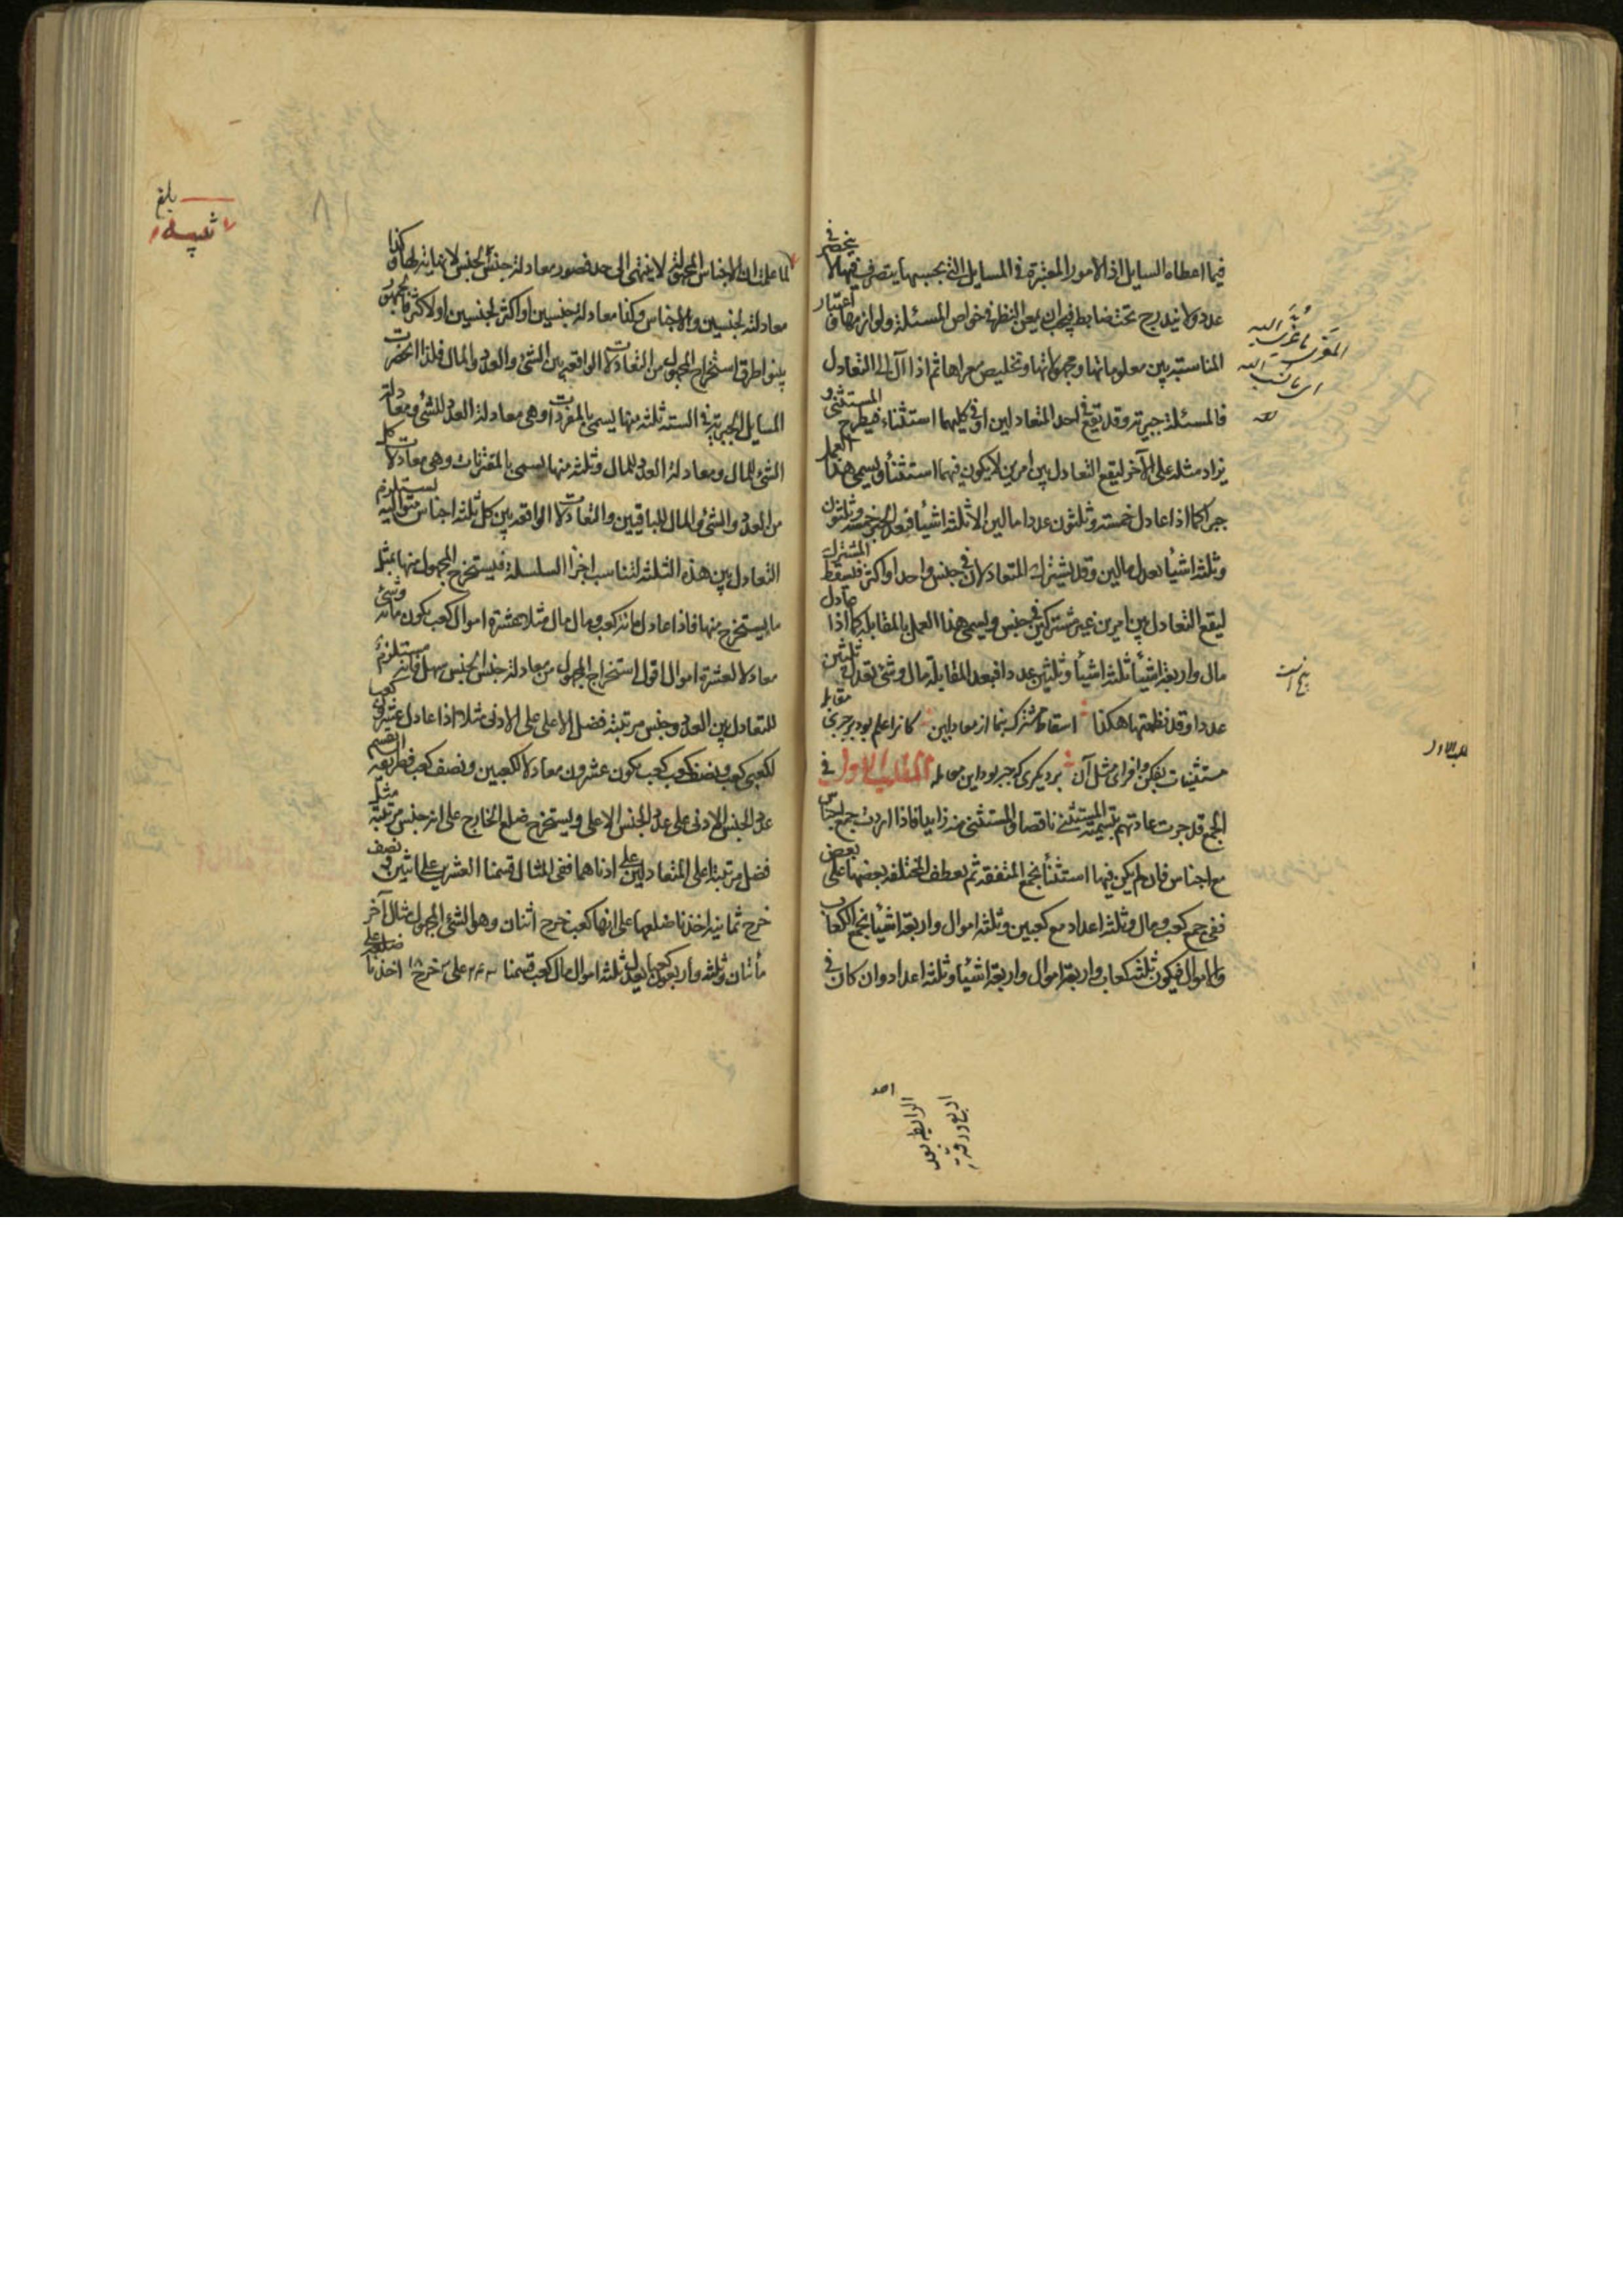 فيما اعطاه السايل اذ الامور المعتبرة فى المسايل التى بحسبها يتصرف فيها لا ينحصر فى
عدد ولا يندرج تحت ضابط فيجب ان يمعن النظر فى خواص المسئلة ولوازمها و اعتبار
المناسبة بين معلوماتها ومجهولاتها وتخليص معراها ثم اذا آل الى التعادل
فالمسئلة جبرية وقد يقع فى احد المتعادلين او فى كليهما استثناء فيطرح المستثنى و
يزاد مثله على الآخر ليقع التعادل بين امرين لا يكون فيهما استثناء ويسمى هذا العمل
جبرا كما اذا عادل خمسة وثلثون عددا مالين الا ثلثة اشياء فبعد الجبر خمسة وثلثون
وثلثة اشياء يعدل مالين وقد يشترك المتعادلان فى جنس واحد او اكثر فيسقط المشترك
ليقع التعادل بين امرين غير مشتركين فى جنس ويسمى هذا العمل بالمقابلة كما اذا عادل
مال واربعة اشياء ثلثة اشياء وثلثين عددا فبعد المقابلة مال وشئ يعدل ثلثين
عددا وقد نظمتها هكذا اسقاط مشترك بنما از معادلين كانرا علم بود بر جبرى مقابله
مستثنيات بفكن وافزاى مثل آن برديكرى كه جبر بود اين معامله المطلب الاول فى
الجمع قد جرت عادتهم بتسمية المستثنى ناقصا والمستثنى منه زايدا فاذا اردت جمع اجناس
مع اجناس فان لم يكن فيها استثناء نجمع المتفقة ثم يعطف المختلفة بعضها على بعض
ففى جمع كعب ومال وثلثة اعداد مع كعبين وثلثة اموال واربعة اشياء نجمع الكعاب
والاموال فيكون ثلثة كعاب واربعة اموال واربعة اشياء وثلثة اعداد وان كان فى
المطلب الاول
لما علمت ان الاجناس المجهولة لا ينتهى الى حد فصور معادلة جنس لجنس لا نهاية لها وكذا
معادلة جنسين والاجناس وكذا معادلة جنسين او اكثر لجنسين او لاكثر والجمهور
بينوا طرق استخراج المجهول من التعادلات الواقعة بين الشئ والعدد والمال فلذا انحصرت
المسايل الجبرية فى الستة ثلثة منها يسمى بالمفردات وهى معادلة العدد للشئ ومعادلة
الشئ للمال ومعادلة العدد للمال وثلثة منها يسمى بالمقترنات وهى معادلات كل
من العدد والشئ والمال للباقيين والتعادلات الواقعة بين كل ثلثة اجناس متوالية يستلزم
التعادل بين هذه الثلثة لتناسب اجزا السلسلة فيستخرج المجهول منها بمثل
ما يستخرج منها فاذا عادل مائة كعب ومال مال مثلا عشرة اموال كعب يكون مائة وشئ
معادلا لعشرة اموال اقول استخراج المجهول من معادلة جنس لجنس سهل فانه مستلزم
للتعادل بين العدد وجنس مرتبته فضل الاعلى على الادنى مثلا اذا عادل عشرون كعب
لكعبى كعب ونصف كعب كعب يكون عشرون معادلا لكعبين ونصف كعب فطريقه ان تقسم
عدد الجنس الادنى على عدد الجنس الاعلى ويستخرج ضلع الخارج على انه جنس مرتبته مثل
فضل مرتبة اعلى المتعادلين على ادناهما ففى المثال قسمنا العشرين على اثنين ونصف
خرج ثمانية اخذنا ضلعها على انها كعب خرج اثنان وهو الشئ المجهول مثال آخر
مأتان وثلثة واربعون كعبا يعدل ثلثة اموال مال كعب قسمنا ٢٤٣ على ٣ خرج ٨١ اخذنا ضلعه على